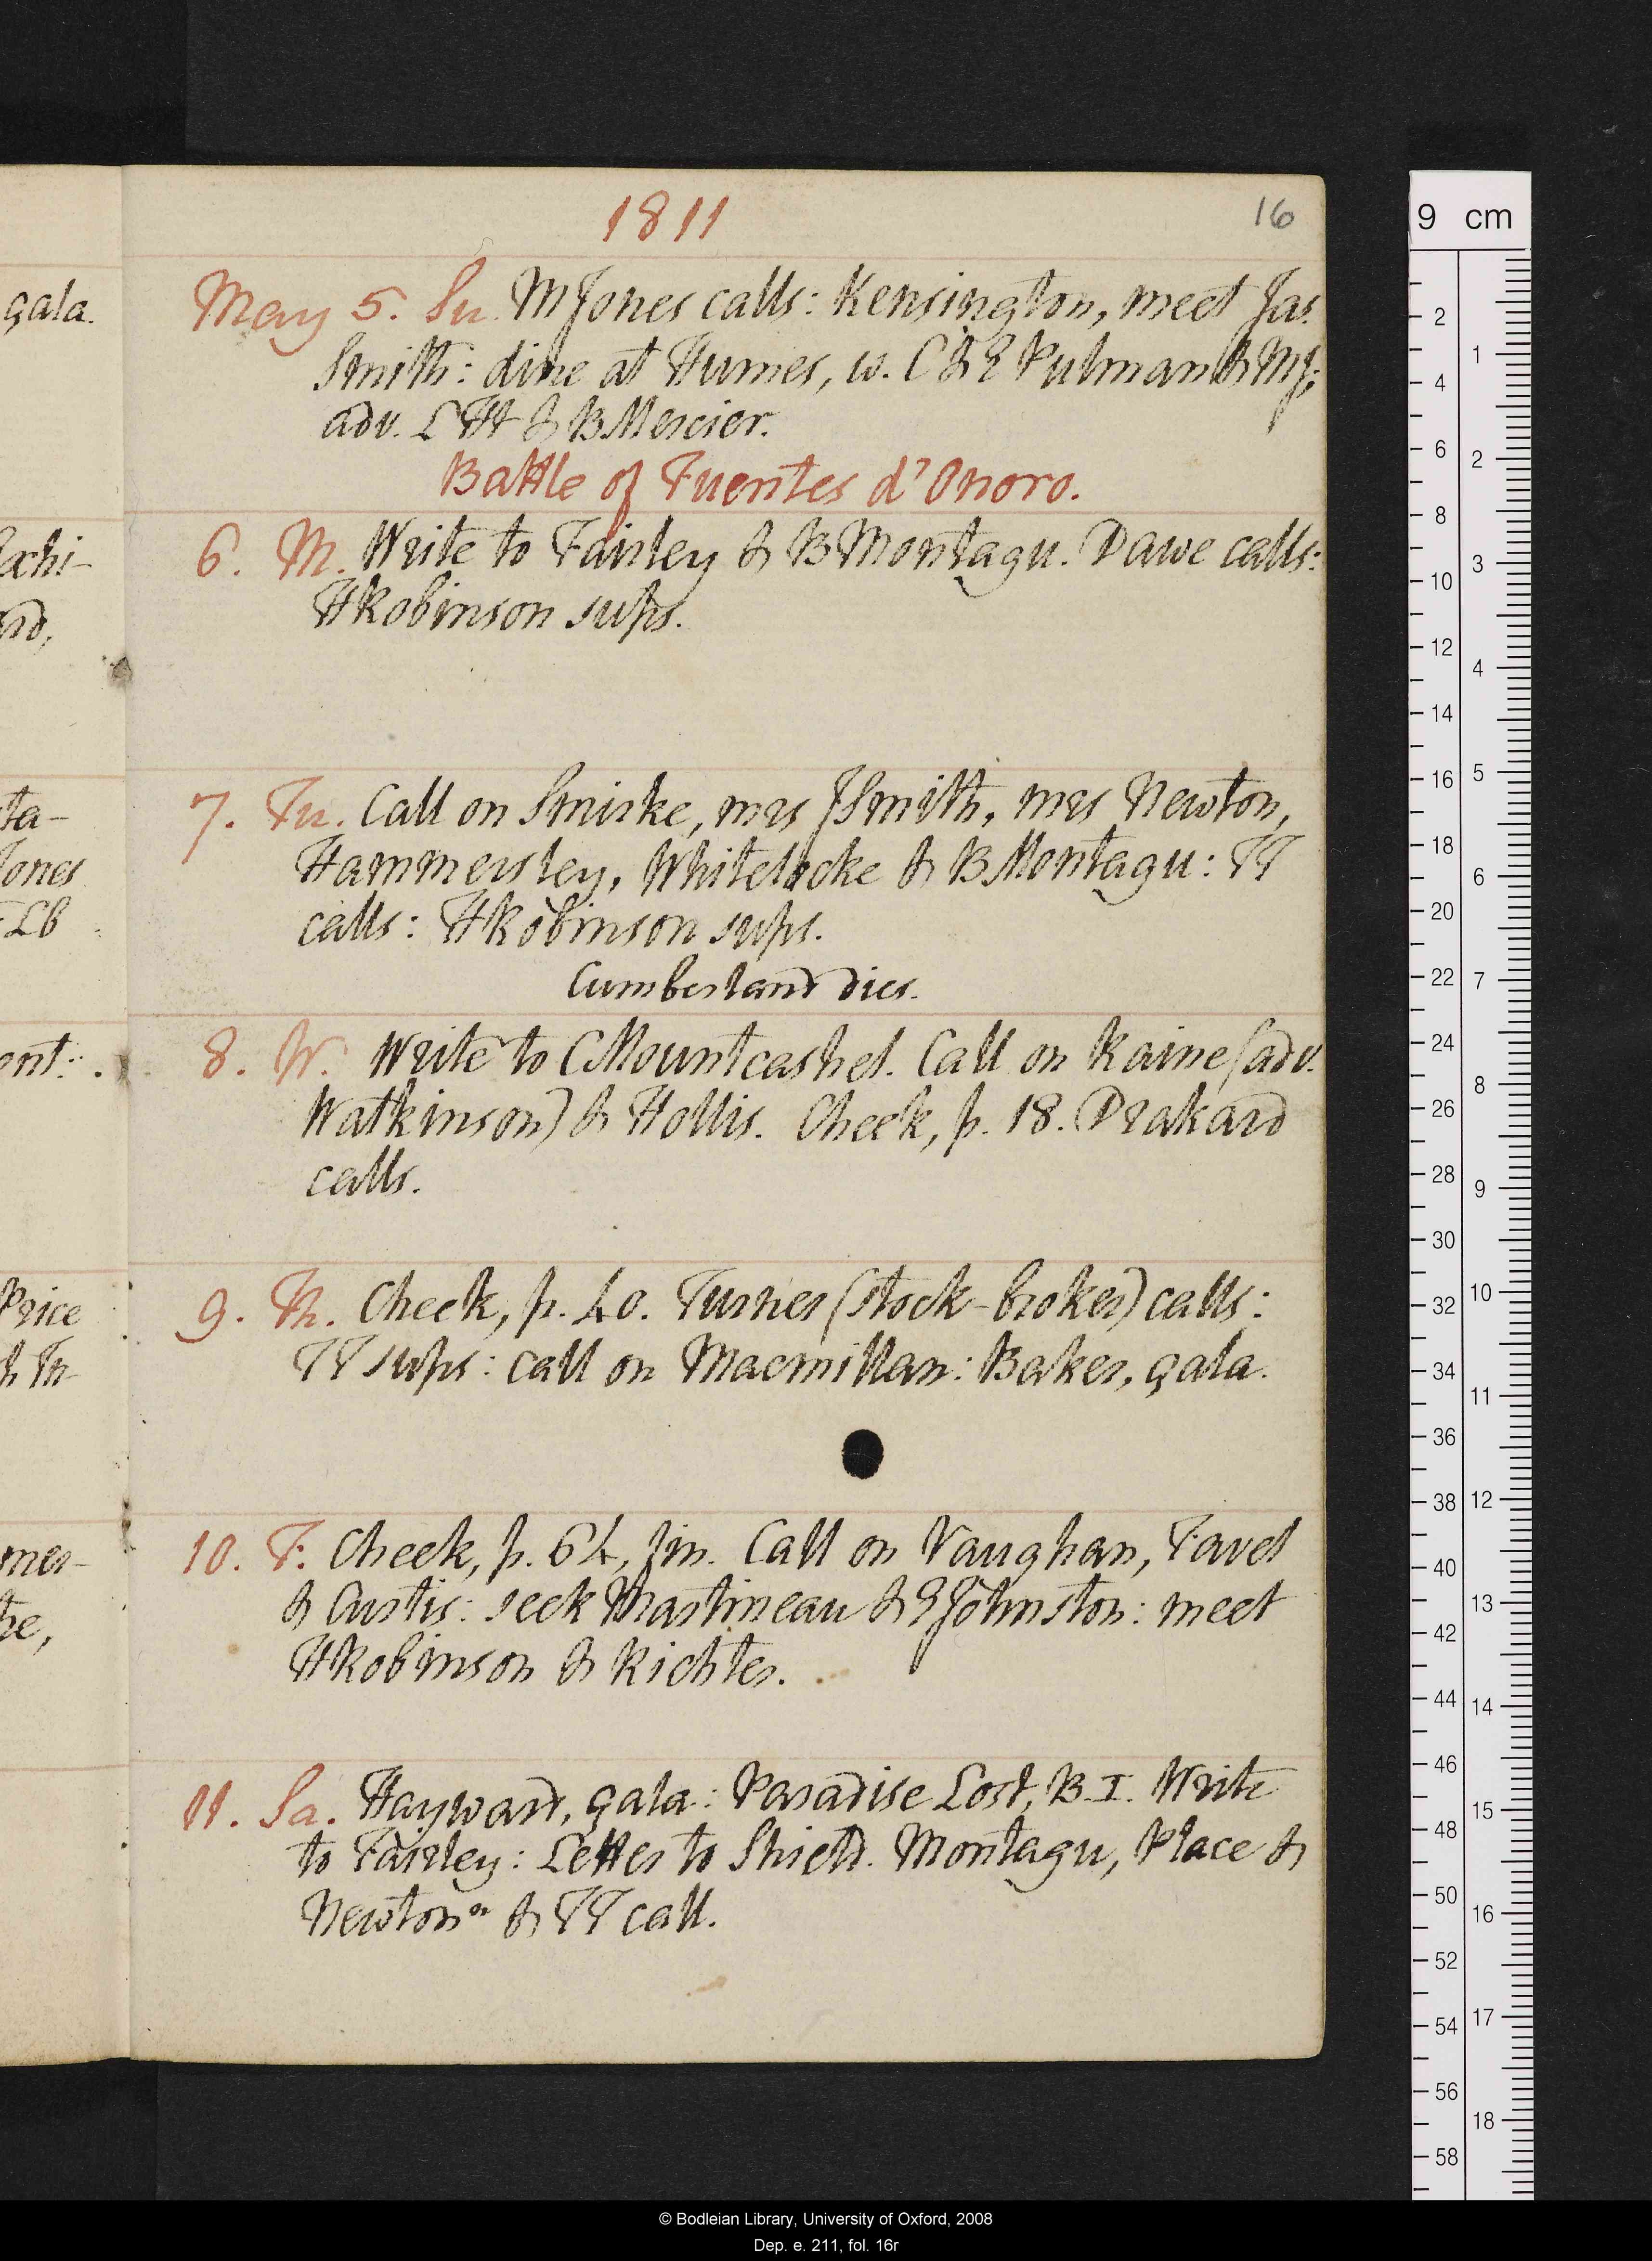 1811
16
May 5. Su. M Jones calls: Kensington, meet Jas.
Smith: dine at Humes, w. C & E Pulman & MJ;
adv. L H & B Mercier.
Battle of Fuentes d'Onoro.
6. M. Write to Fairley & B Montagu. Dawe calls:
H Robinson sups.
7. Tu. Call on Smirke, mrs J Smith, mrs Newton,
Hammersley, Whitelocke & B Montagu: TT
calls: H Robinson sups.
Cumberland dies.
8. W. Write to C Mountcashel. Call on Raine (adv.
Watkinson) & Hollis. Cheek, p. 18. Drakard
calls.
9. Th. Cheek, p. 40. Turner (stock-broker) calls:
TT sups: call on Macmillan: Baker, gala.
10. F. Cheek, p. 64, fin. Call on Vaughan, Favel
& Curtis: seek Martineau & E Johnston: meet
H Robinson & Richter.
11. Sa. Hayward, gala: Paradise Lost, B. I. Write
to Fairley: Letter to Shield. Montagu, Place &
Newtonⁿ & TT call.
gala.
achi-
rd,
ta-
Jones
Lb
ont:
Price
& Tu-
mer-
he,
9 cm
2
4
6
8
10
12
14
16
18
20
22
24
26
28
30
32
34
36
38
40
42
44
46
48
50
52
54
56
58
1
2
3
4
5
6
7
8
9
10
11
12
13
14
15
16
17
18
© Bodleian Library, University of Oxford, 2008
Dep. e. 211, fol. 16r